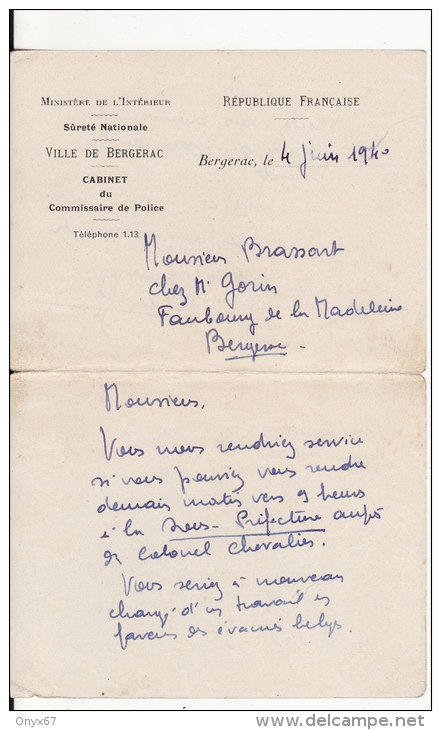 MINISTÈRE DE L'INTÉRIEUR
Sûreté Nationale
VILLE DE BERGERAC
CABINET
du
Commissaire de Police
Téléphone 1.13
RÉPUBLIQUE FRANÇAISE
Bergerac, le 4 juin 1940
Monsieur Brassart
chez Mr Gorin
Faubourg de la Madeleine
Bergerac
Monsieur,
Vous nous rendriez service
si vous pouviez vous rendre
demain matin vers 9 heures
à la Sous-Préfecture auprès
du Colonel Chevalier.
Vous seriez à nouveau
chargé d'un travail en
faveur des évacués belges.
Onyx67
delcampe.net